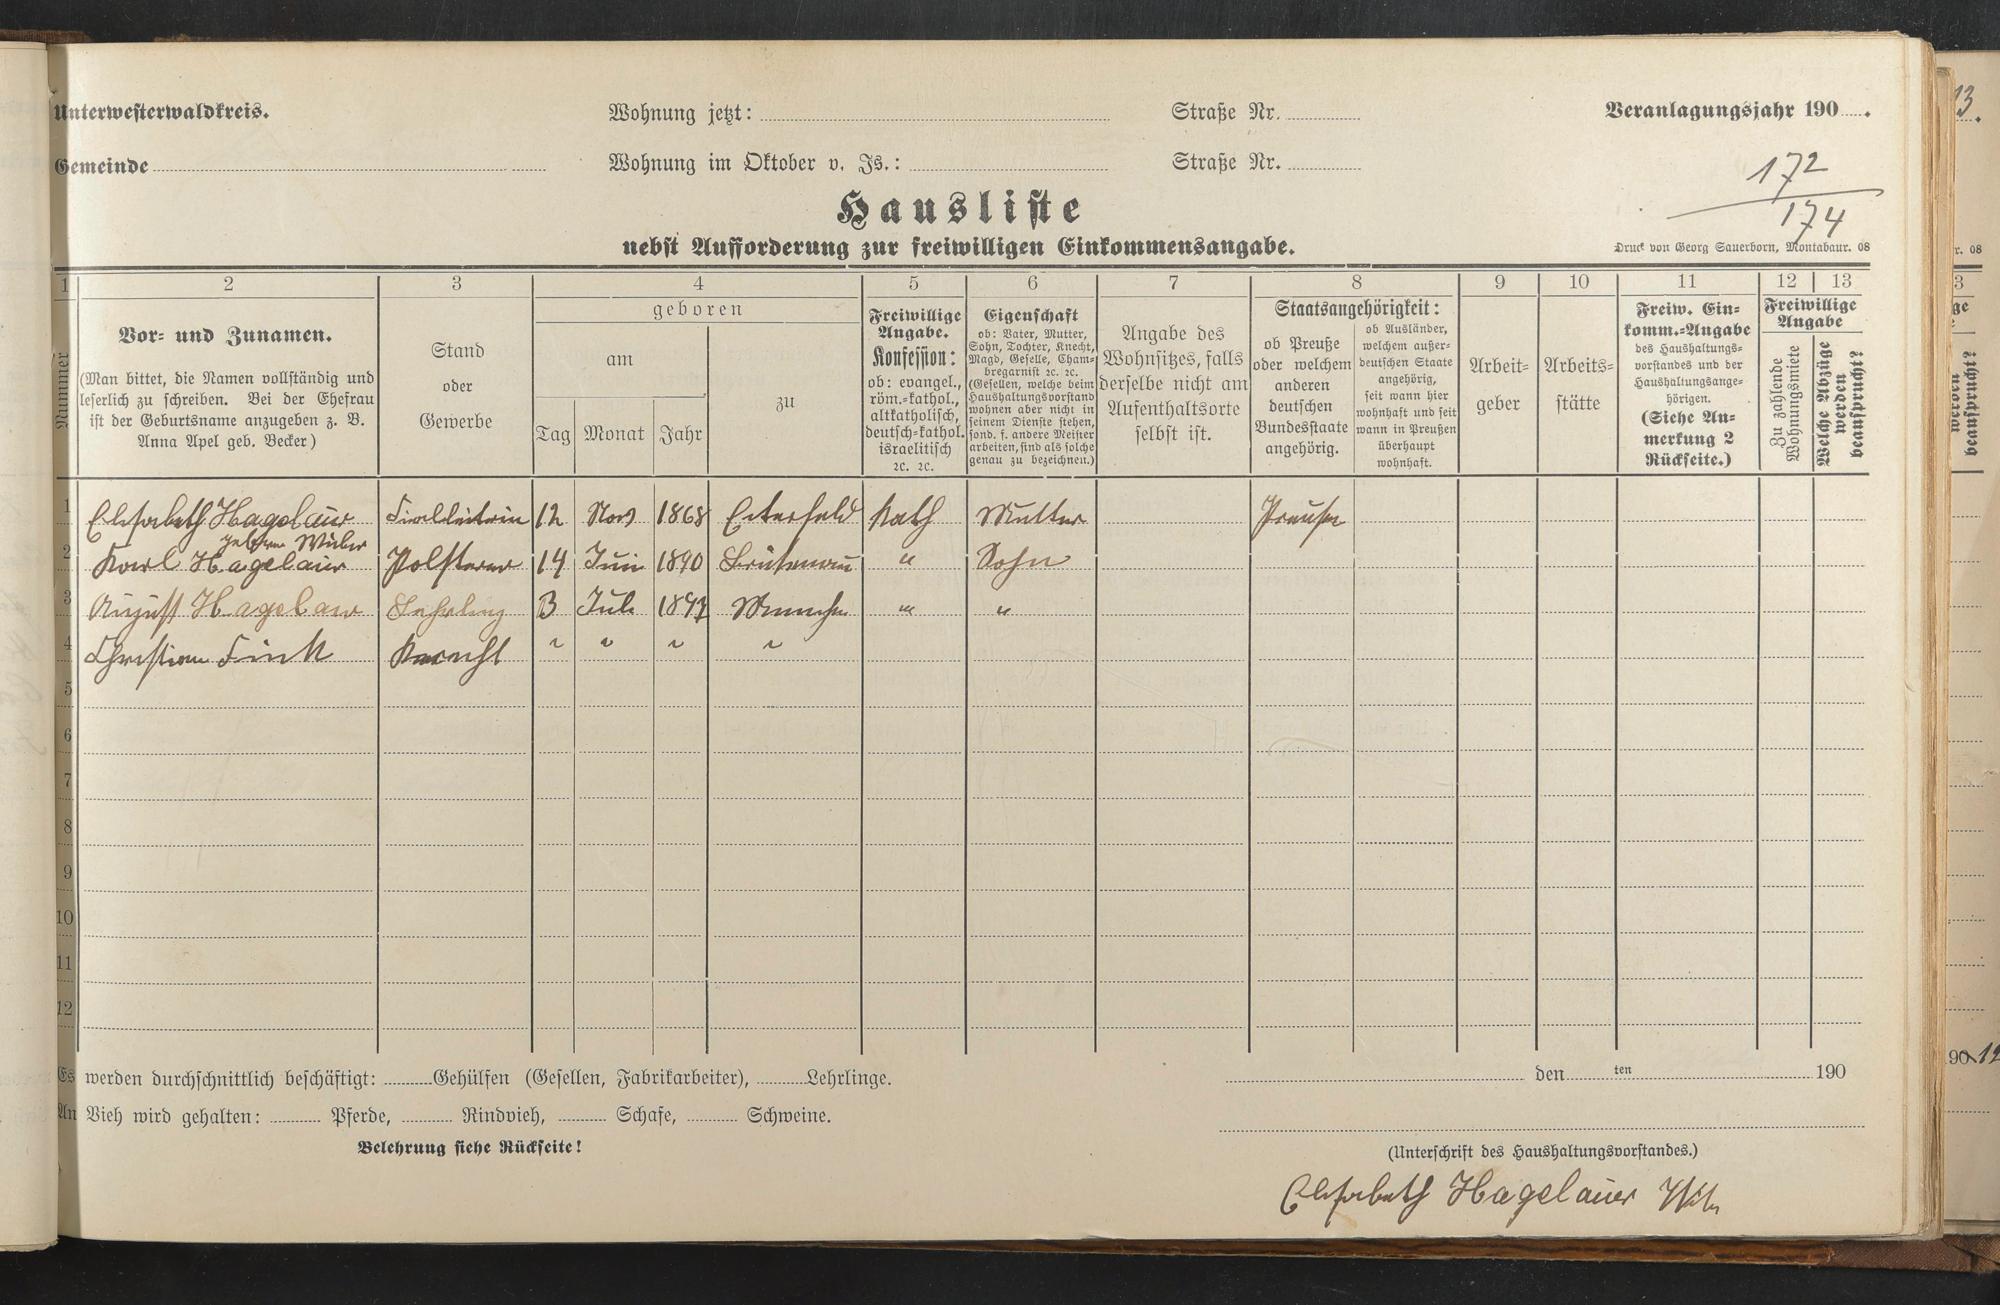 Unterwesterwaldkreis.
Wohnung jetzt:
Straße Nr.
Veranlagungsjahr 190 .
Gemeinde
Wohnung im Oktober v. Js.:
Straße Nr.
172
174
Hausliste
nebst Aufforderung zur freiwilligen Einkommensangabe.
Druck von Georg Sauerborn, Montabaur. 08
1 2 3 4 5 6 7 8 9 10 11 12 13
Nummer
Vor- und Zunamen.
(Man bittet, die Namen vollständig und
leserlich zu schreiben. Bei der Ehefrau
ist der Geburtsname anzugeben z. B.
Anna Apel geb. Becker)
Stand
oder
Gewerbe
geboren
am
Tag Monat Jahr
zu
Freiwillige
Angabe.
Konfession:
ob: evangel.,
röm.-kathol.,
altkatholisch,
deutsch-kathol.
israelitisch
ꝛc. ꝛc.
Eigenschaft
ob: Vater, Mutter,
Sohn, Tochter, Knecht,
Magd, Geselle, Cham-
bregarnist ꝛc. ꝛc.
(Gesellen, welche beim
Haushaltungsvorstand
wohnen aber nicht in
seinem Dienste stehen,
sond. f. andere Meister
arbeiten, sind als solche
genau zu bezeichnen.)
Angabe des
Wohnsitzes, falls
derselbe nicht am
Aufenthaltsorte
selbst ist.
Staatsangehörigkeit:
ob Preuße
oder welchem
anderen
deutschen
Bundesstaate
angehörig.
ob Ausländer,
welchem außer-
deutschen Staate
angehörig,
seit wann hier
wohnhaft und seit
wann in Preußen
überhaupt
wohnhaft.
Arbeit-
geber
Arbeits-
stätte
Freiw. Ein-
komm.-Angabe
des Haushaltungs-
vorstandes und der
Haushaltungsange-
hörigen.
(Siehe An-
merkung 2
Rückseite.)
Freiwillige
Angabe
Zu zahlende
Wohnungsmiete
Welche Abzüge
werden
gewünscht?
1 Elisabeth Hagelauer 12 Nov 1868 Eiterfeld Kath Mutter Preuße
geborne
2 Karl Hagelauer Polsterer 14 Juni 1890 " Sohn
3 August Hagelauer Lehrling 3 Juli " "
4 Christian Fink Knecht " " " "
5
6
7
8
9
10
11
12
Es werden durchschnittlich beschäftigt: Gehülfen (Gesellen, Fabrikarbeiter), Lehrlinge.
den ten 190
An Vieh wird gehalten: Pferde, Rindvieh, Schafe, Schweine.
Belehrung siehe Rückseite!
(Unterschrift des Haushaltungsvorstandes.)
Elisabeth Hagelauer Wtw